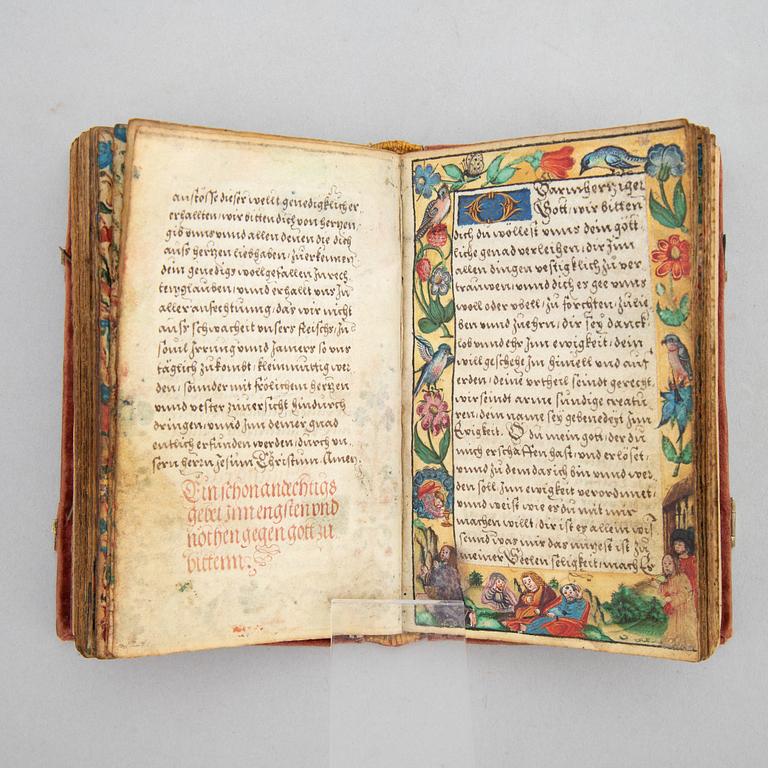 anstösse dieser wellt genedigklicher
erhallten, wir bitten dich von hertzen
gib vnns vnnd allen denen die dich
auss hertzen liebhaben, zu erkennen
dein genedigs wollgefallen zu rech
tenglauben, vnnd erhallt vns In
aller anfechtung, das wir nicht
auss schwacheit vnsers fleischs, In
souil Irrung vnnd Jamers so vns
täglich zukombt, kleinmuttig wer
den, sonnder mit frölichem hertzen
vnnd vester zuuersicht hindurch
dringen, vnnd in deiner gnad
entlich erfunden werden, durch vn
sern herrn Jesum Christum, Amen.
Ein schon andechtigs
gebet Inn engsten vnd
nöthen gegen gott zu
bittenn.
O Barmhertziger
Gott, wir bitten
dich du wöllest vnns dein gött
liche genad verleihen, dir Inn
allen dingen vestigklich zu ver
trauwen, vnnd dich es gee vnns
woll oder vbell, zu förchten, zu lie
ben vnnd zu ehrn, dir sey danck
lob vnnd ehr Inn ewigkeit, dein
will geschehe Im himell vnd auf
erden, deine vrtheil seindt gerecht,
wir seindt arme sundige creatu
ren, dein name sey gebenedeyt Inn
Ewigkeit. O du mein gott, der du
mich erschaffen hast, vnd erlöset,
vnnd zu dem das ich bin vnnd wer
den soll Inn ewigkeit verordnnet,
vnnd weist wie es du mit mir
machen willt, dir ist es allein wis
senndt was mir das nutzest ist zu
meiner Seelen seligkeit, mach Es